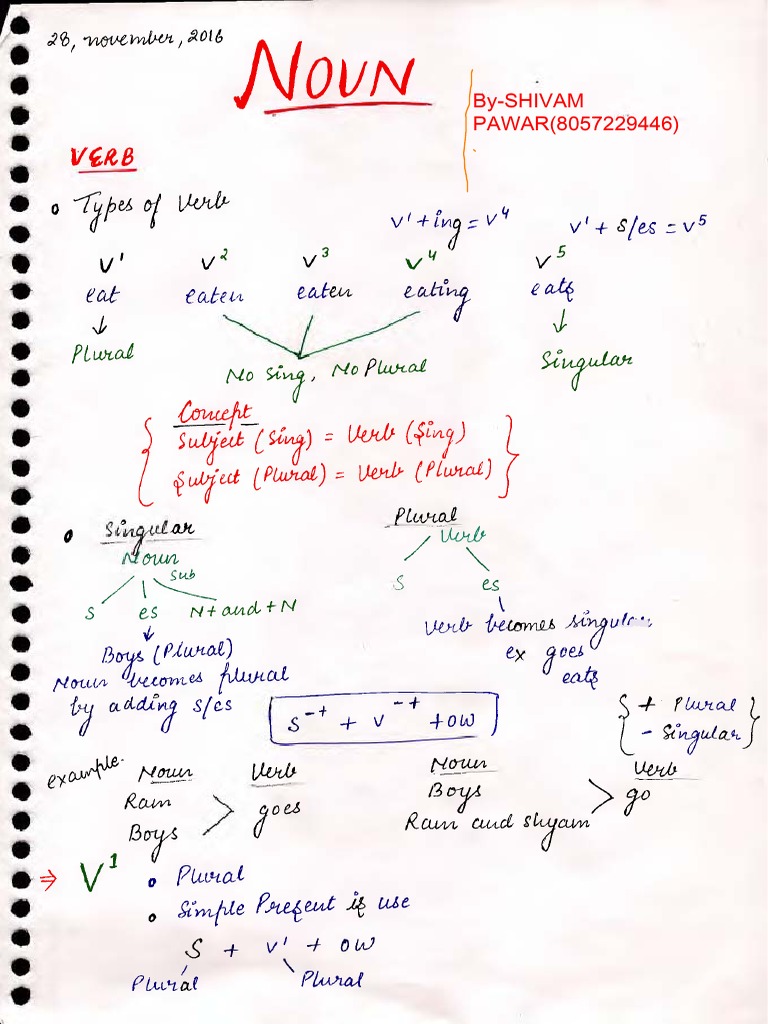 28, november, 2016
NOUN
By-SHIVAM
PAWAR(8057229446)
VERB
Types of Verb
V¹+ing = V⁴
V¹ + s/es = V⁵
V¹ V² V³ V⁴ V⁵
eat eaten eaten eating eats
Plural
No Sing, No Plural
Singular
Concept
Subject (Sing) = Verb (Sing)
Subject (Plural) = Verb (Plural)
Singular
Noun
Sub
s es N+and+N
Boys (Plural)
Noun becomes plural
by adding s/es
Plural
Verb
s es
Verb becomes singular
ex goes
eats
S⁻⁺ + V⁻⁺ + OW
+ Plural
- Singular
example.
Noun Verb
Ram
goes
Boys
Noun Verb
Boys
go
Ram and shyam
⇒ V¹
Plural
Simple Present is use
S + V¹ + OW
Plural Plural